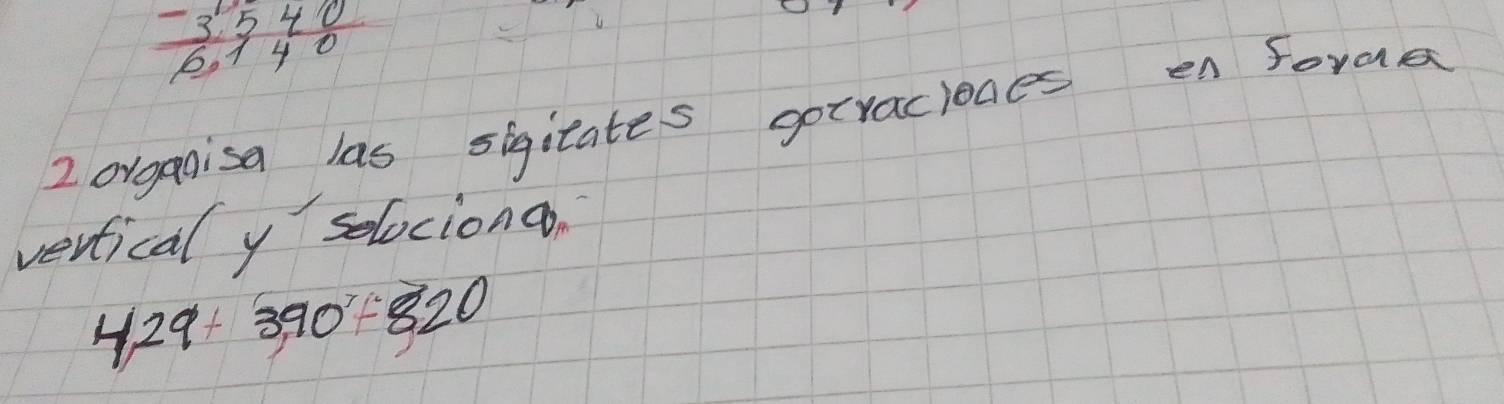 - 3.540
6,140
2 organisa las sigitates gotraciones en forma
vertical y soluciona.
4,29 + 3,90 + 8,20